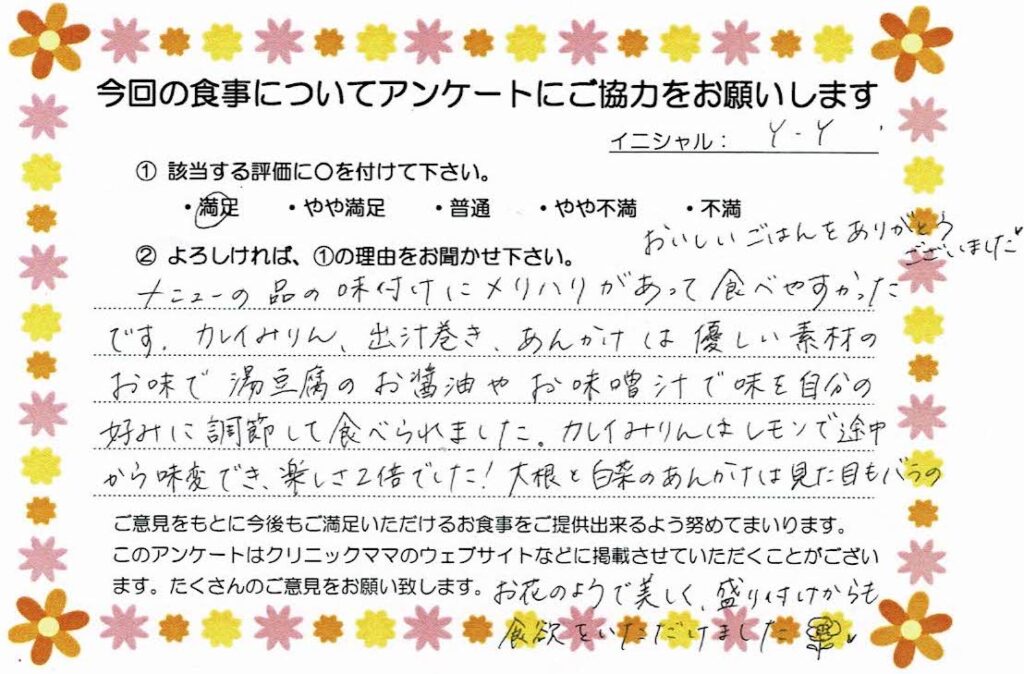 今回の食事についてアンケートにご協力をお願いします
イニシャル： Y-Y
① 該当する評価に〇を付けて下さい。
・満足 ・やや満足 ・普通 ・やや不満 ・不満
② よろしければ、①の理由をお聞かせ下さい。
おいしいごはんをありがとう
ございました
メニューの品の味付けにメリハリがあって食べやすかった
です。カレイみりん、出汁巻き、あんかけは優しい素材の
お味で湯豆腐のお醤油やお味噌汁で味を自分の
好みに調節して食べられました。カレイみりんはレモンで途中
から味変でき、楽しさ2倍でした！大根と白菜のあんかけは見た目もバラの
ご意見をもとに今後もご満足いただけるお食事をご提供出来るよう努めてまいります。
このアンケートはクリニックママのウェブサイトなどに掲載させていただくことがござい
ます。たくさんのご意見をお願い致します。
お花のようで美しく、盛り付けからも
食欲をいただけました